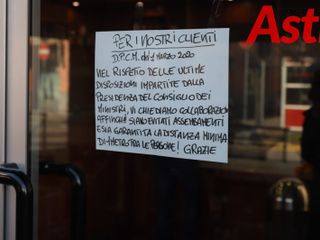 Ast
PER I NOSTRI CLIENTI
D.P.C.M. del 1 MARZO 2020
NEL RISPETTO DELLE ULTIME
DISPOSIZIONI IMPARTITE DALLA
PRESIDENZA DEL CONSIGLIO DEI
MINISTRI, VI CHIEDIAMO COLLABORAZIONE
AFFINCHÈ SIANO EVITATI ASSEMBRAMENTI
E SIA GARANTITA LA DISTANZA MINIMA
DI 1 METRO TRA LE PERSONE! GRAZIE